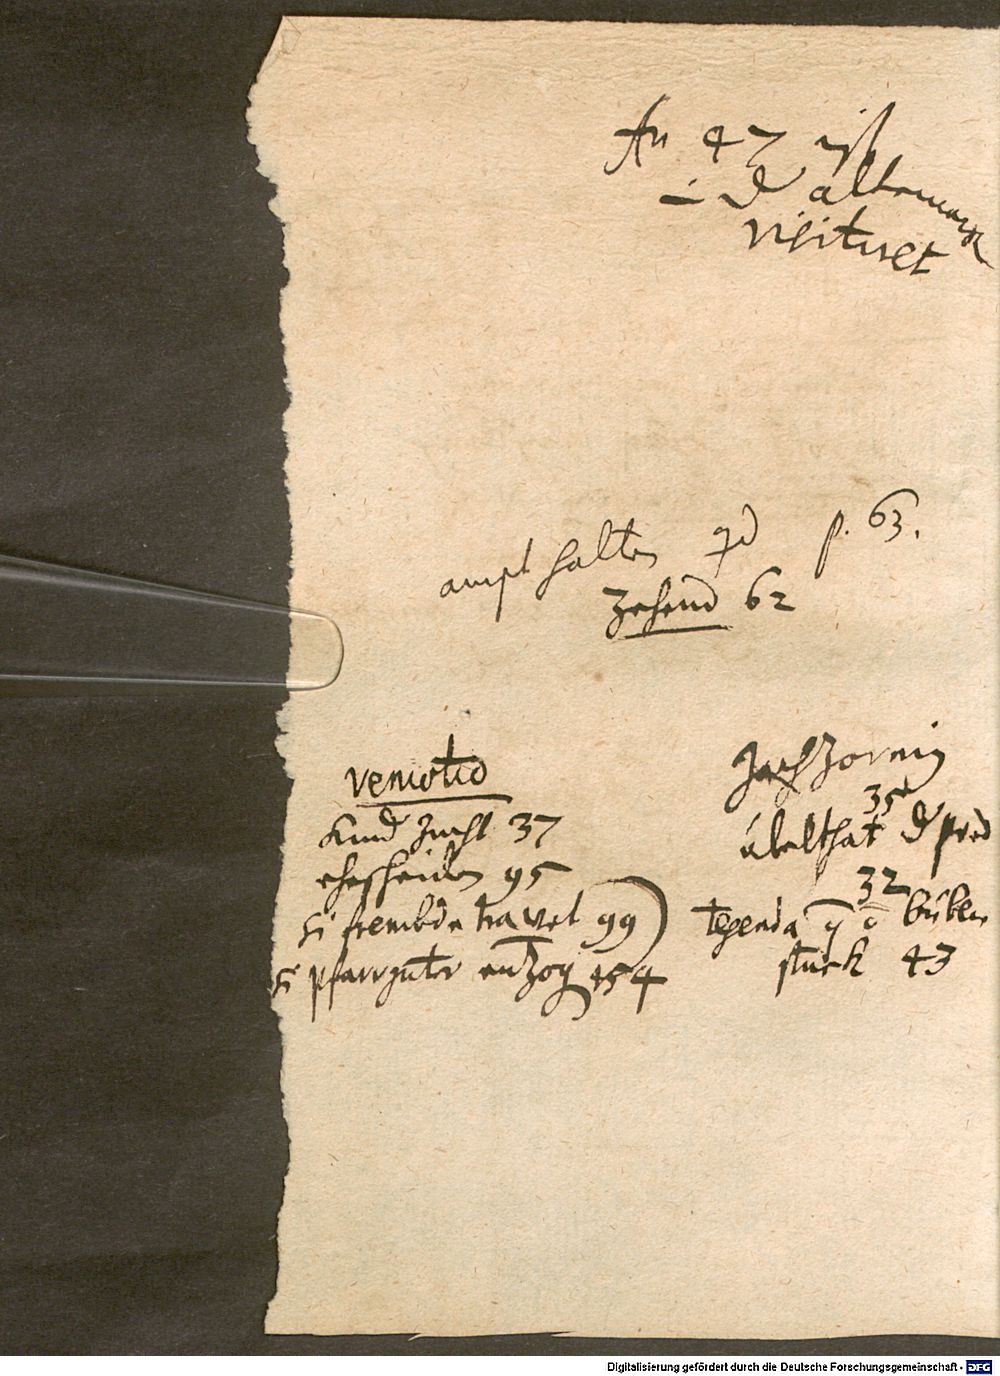 An 47 ist
i d altemark
visitiret
ampt halten qd p. 63.
Zehend 62
remotio
Kind Zucht 37
ehescheiden 95
si frembde trauet 99
si pfarrguter entzog 154
Jachzornig
35
übelthat d pred
32
tegenda bûben
stuck 43
Digitalisierung gefördert durch die Deutsche Forschungsgemeinschaft - DFG